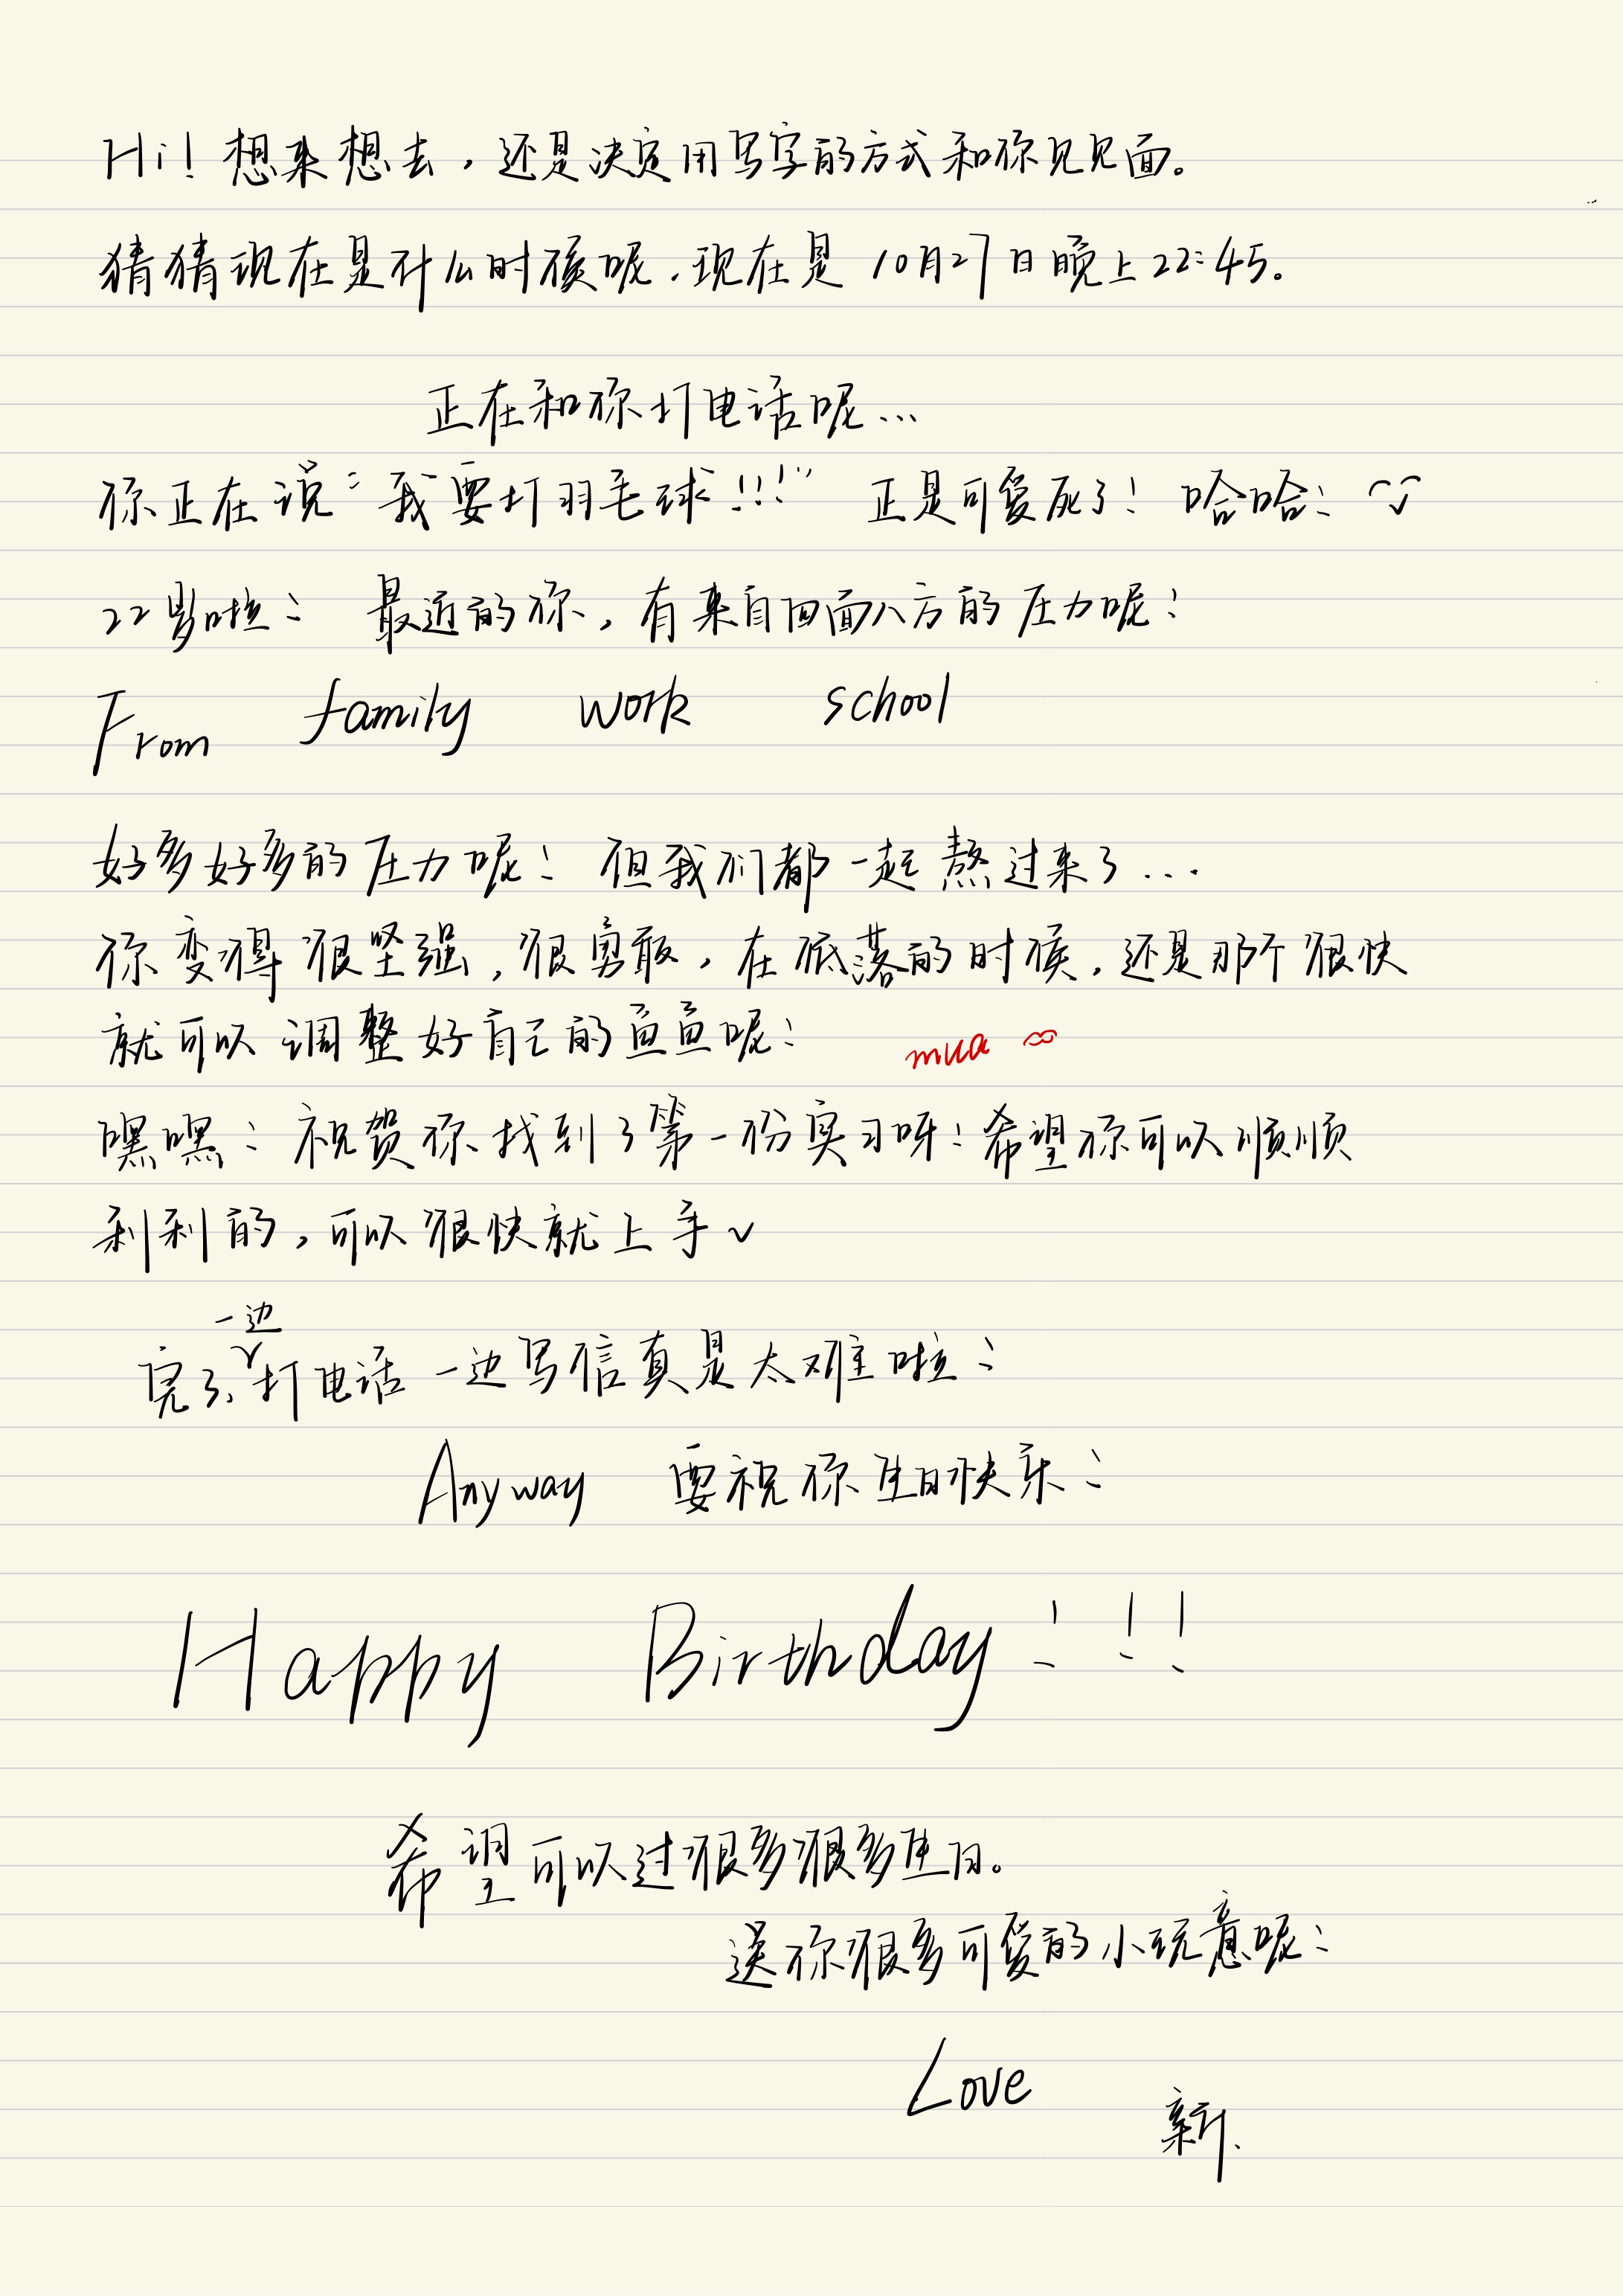 Hi! 想来想去，还是决定用写字的方式和你见见面。
猜猜现在是什么时候呢.现在是 10月27日晚上22:45。
正在和你打电话呢...
你正在说：“我要打羽毛球!!!” 正是可爱死了! 哈哈!
22岁啦! 最近的你，有来自四面八方的压力呢!
From family work school
好多好多的压力呢! 但我们都一起熬过来了...
你变得很坚强，很勇敢，在低落的时候，还是那个很快
就可以调整好自己的鱼鱼呢! mua
嘿嘿! 祝贺你找到了第一份实习呀! 希望你可以顺顺
利利的，可以很快就上手~
完了、一边打电话 一边写信真是太难啦!
Anyway 要祝你生日快乐!
Happy Birthday!!!
希望可以过很多很多生日。
送你很多可爱的小玩意呢!
Love
新.